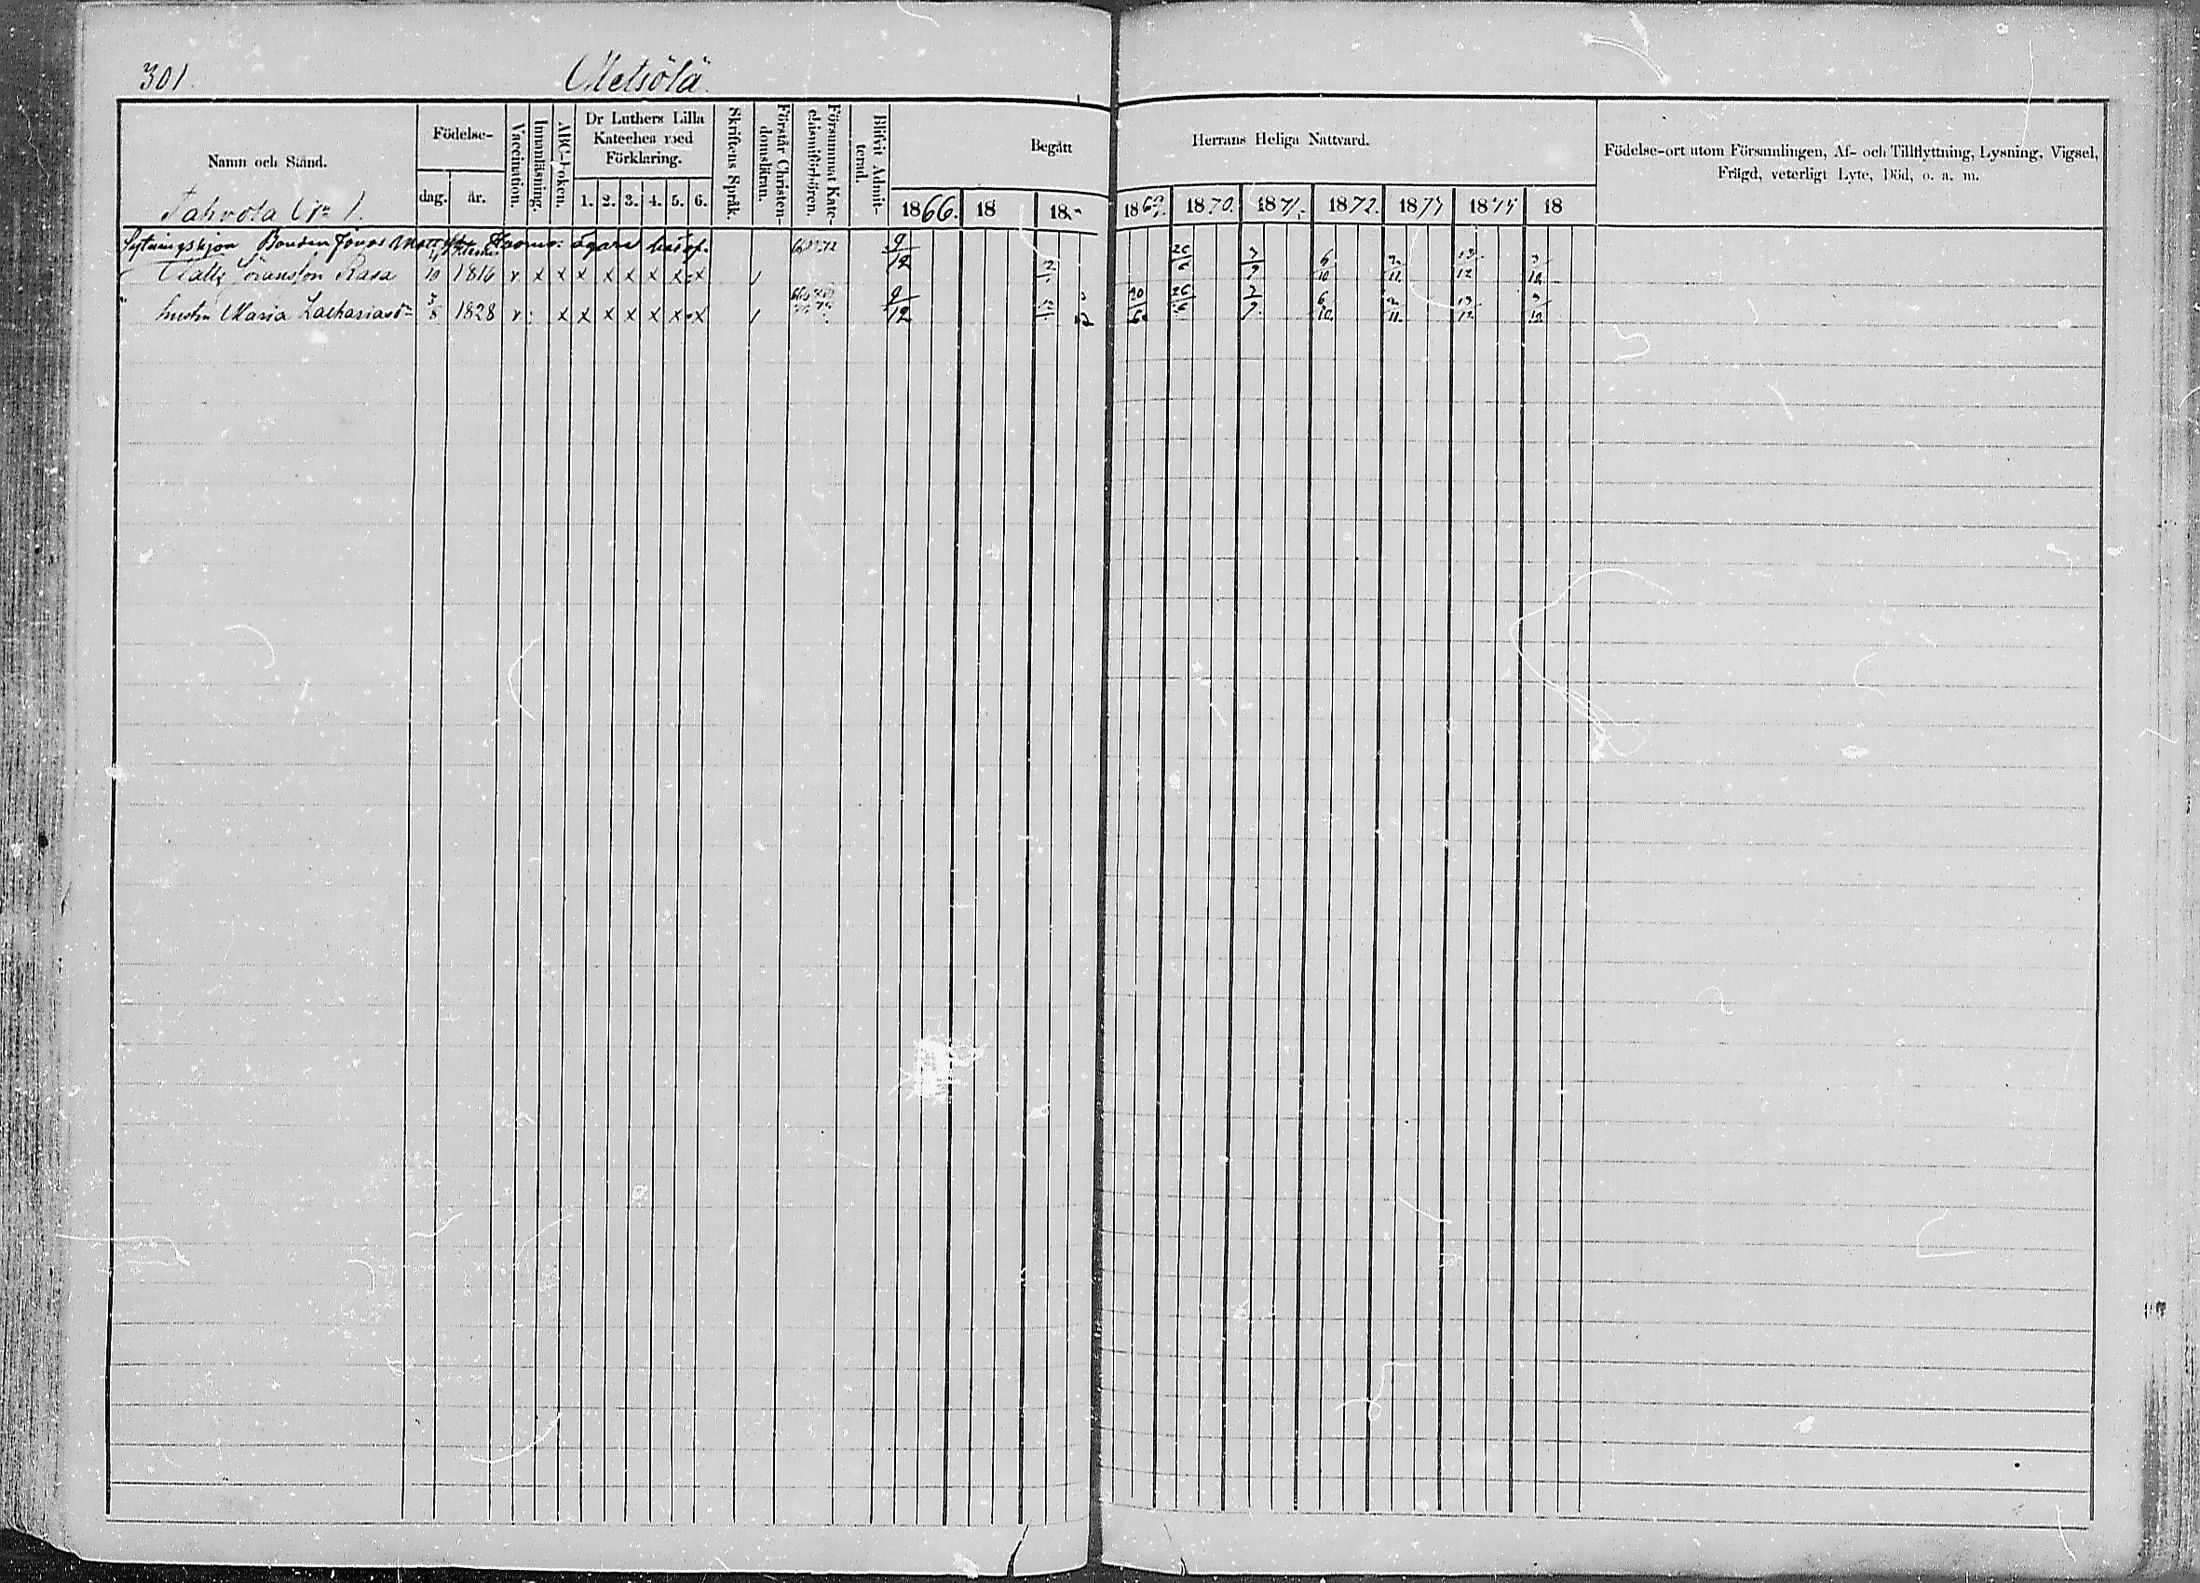 301.
Metsölä
Namn och Stånd.
Födelse-
dag.
år.
Vaccination.
Innanläsning.
ABC-Boken.
Dr Luthers Lilla
Kateches med
Förklaring.
1. 2. 3. 4. 5. 6.
Skriftens Språk.
Förstår Christen-
domsläran.
Försummat Kate-
chismiförhören.
Blifvit Admit-
terad.
Begått
Herrans Heliga Nattvard.
1866. 18 18
1869. 1870. 1871. 1872. 1873 1875 18
Födelse-ort utom Församlingen, Af- och Tillflyttning, Lysning, Vigsel,
Frägd, veterligt Lyte, Död, o. a. m.
Tahvola No 1.
Sytningshjon Bonden Jonas ägare
Matts Göransson Rasa 1816 v x x x x x x x x 9/12 7/9 6/10
hustru Maria Zachariasdr 3/8 1828 v x x x x x x x 9/12 20/6 26/6 7/9 6/10